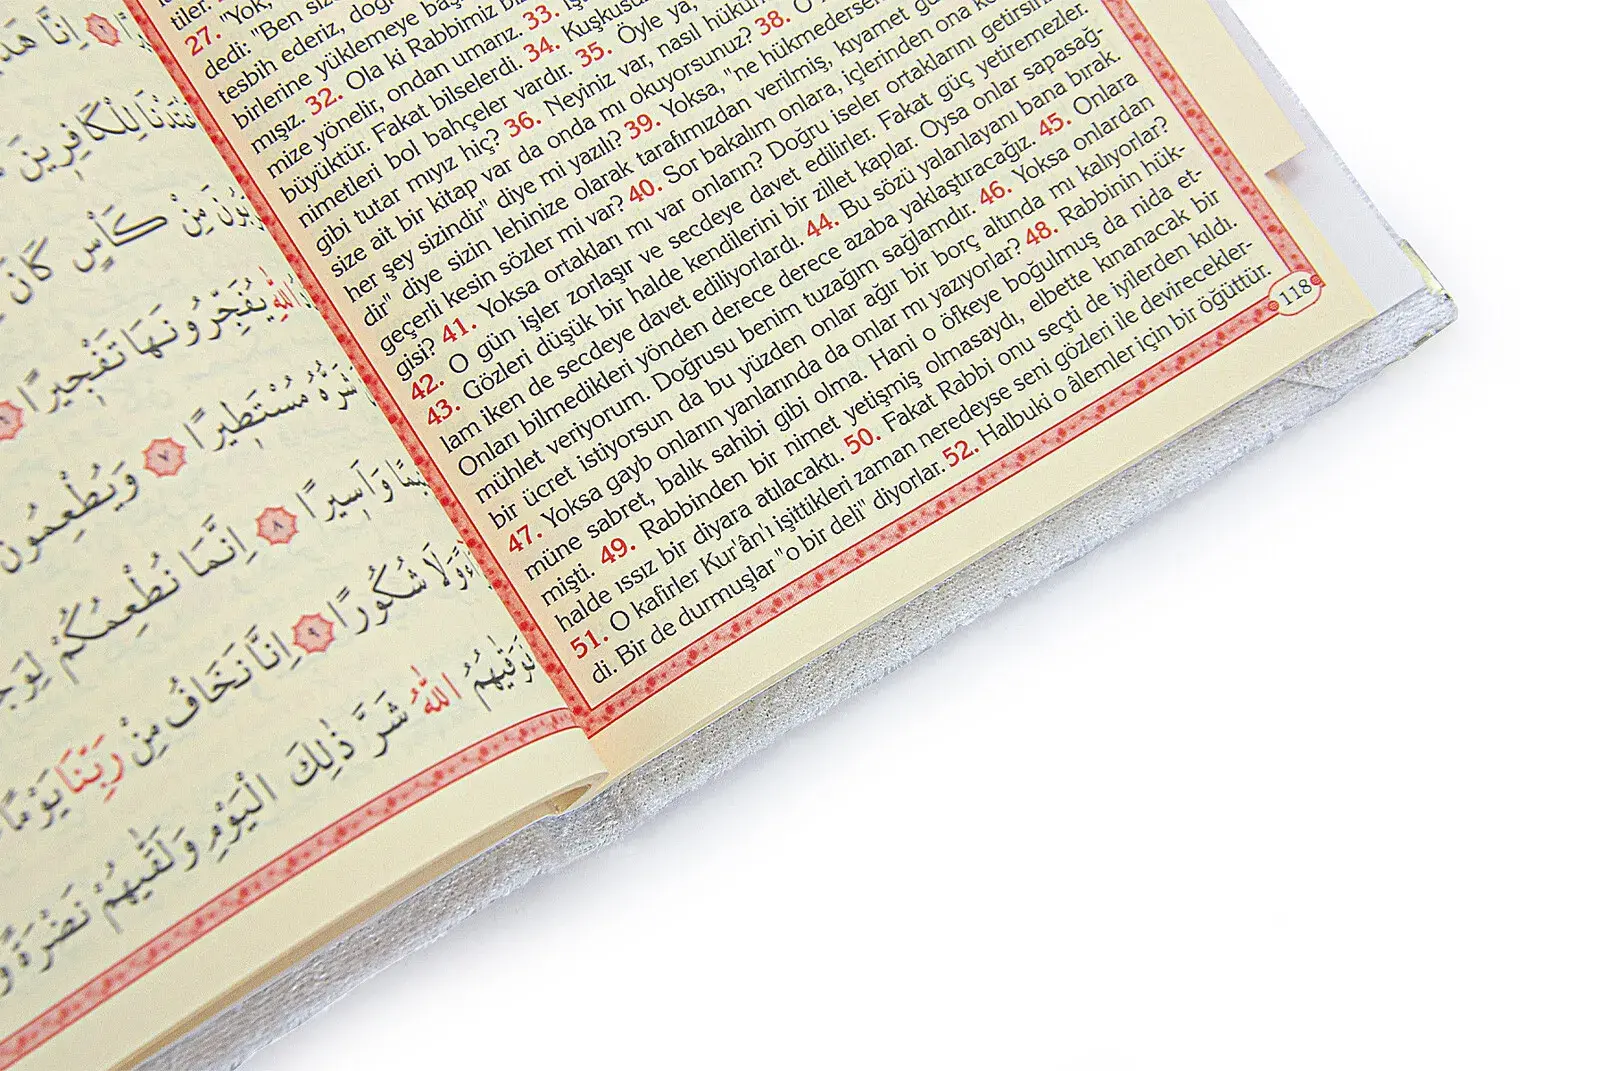 اِنَّا هَدَ
لِلْكَافِرِينَ
مِنْ كَأْسٍ كَانَ
اللّٰهِ يُفَجِّرُونَهَا تَفْجِيرًا ٦
شَرُّهُ مُسْتَطِيرًا ٧ وَيُطْعِمُونَ
وَاَسِيرًا ٨ اِنَّمَا نُطْعِمُكُمْ لِوَجْ
وَلَا شُكُورًا ٩ اِنَّا نَخَافُ مِنْ رَبِّنَا يَوْمًا
اللّٰهُ شَرَّ ذٰلِكَ الْيَوْمِ وَلَقّٰيهُمْ نَضْرَةً وَ
tiler.
27. "Yok,
dedi: "Ben
tesbih ederiz,
birlerine yüklemeye
mışız. 32. Ola ki Rabbimiz
mize yönelir, ondan umarız. 33.
büyüktür. Fakat bilselerdi. 34.
nimetleri bol bahçeler vardır. 35. Öyle ya,
gibi tutar mıyız hiç? 36. Neyiniz var, nasıl
size ait bir kitap var da onda mı okuyorsunuz? 38. O
her şey sizindir" diye mi yazılı? 39. Yoksa, "ne hükmedersen
dir" diye sizin lehinize olarak tarafımızdan verilmiş, kıyamet
geçerli kesin sözler mi var? 40. Sor bakalım onlara, içlerinden ona
gisi? 41. Yoksa ortakları mı var onların? Doğru iseler ortaklarını
42. O gün işler zorlaşır ve secdeye davet edilirler. Fakat güç yetiremezler.
43. Gözleri düşük bir halde kendilerini bir zillet kaplar. Oysa onlar sapasağ-
lam iken de secdeye davet ediliyorlardı. 44. Bu sözü yalanlayanı bana bırak.
Onları bilmedikleri yönden derece derece azaba yaklaştıracağız. 45. Onlara
mühlet veriyorum. Doğrusu benim tuzağım sağlamdır. 46. Yoksa onlardan
bir ücret istiyorsun da bu yüzden onlar ağır bir borç altında mı kalıyorlar?
47. Yoksa gayb onların yanlarında da onlar mı yazıyorlar? 48. Rabbinin hük-
müne sabret, balık sahibi gibi olma. Hani o öfkeye boğulmuş da nida et-
mişti. 49. Rabbinden bir nimet yetişmiş olmasaydı, elbette kınanacak bir
halde ıssız bir diyara atılacaktı. 50. Fakat Rabbi onu seçti de iyilerden kıldı.
51. O kafirler Kur'ân'ı işittikleri zaman neredeyse seni gözleri ile devirecekler-
di. Bir de durmuşlar "o bir deli" diyorlar. 52. Halbuki o âlemler için bir öğüttür.
118